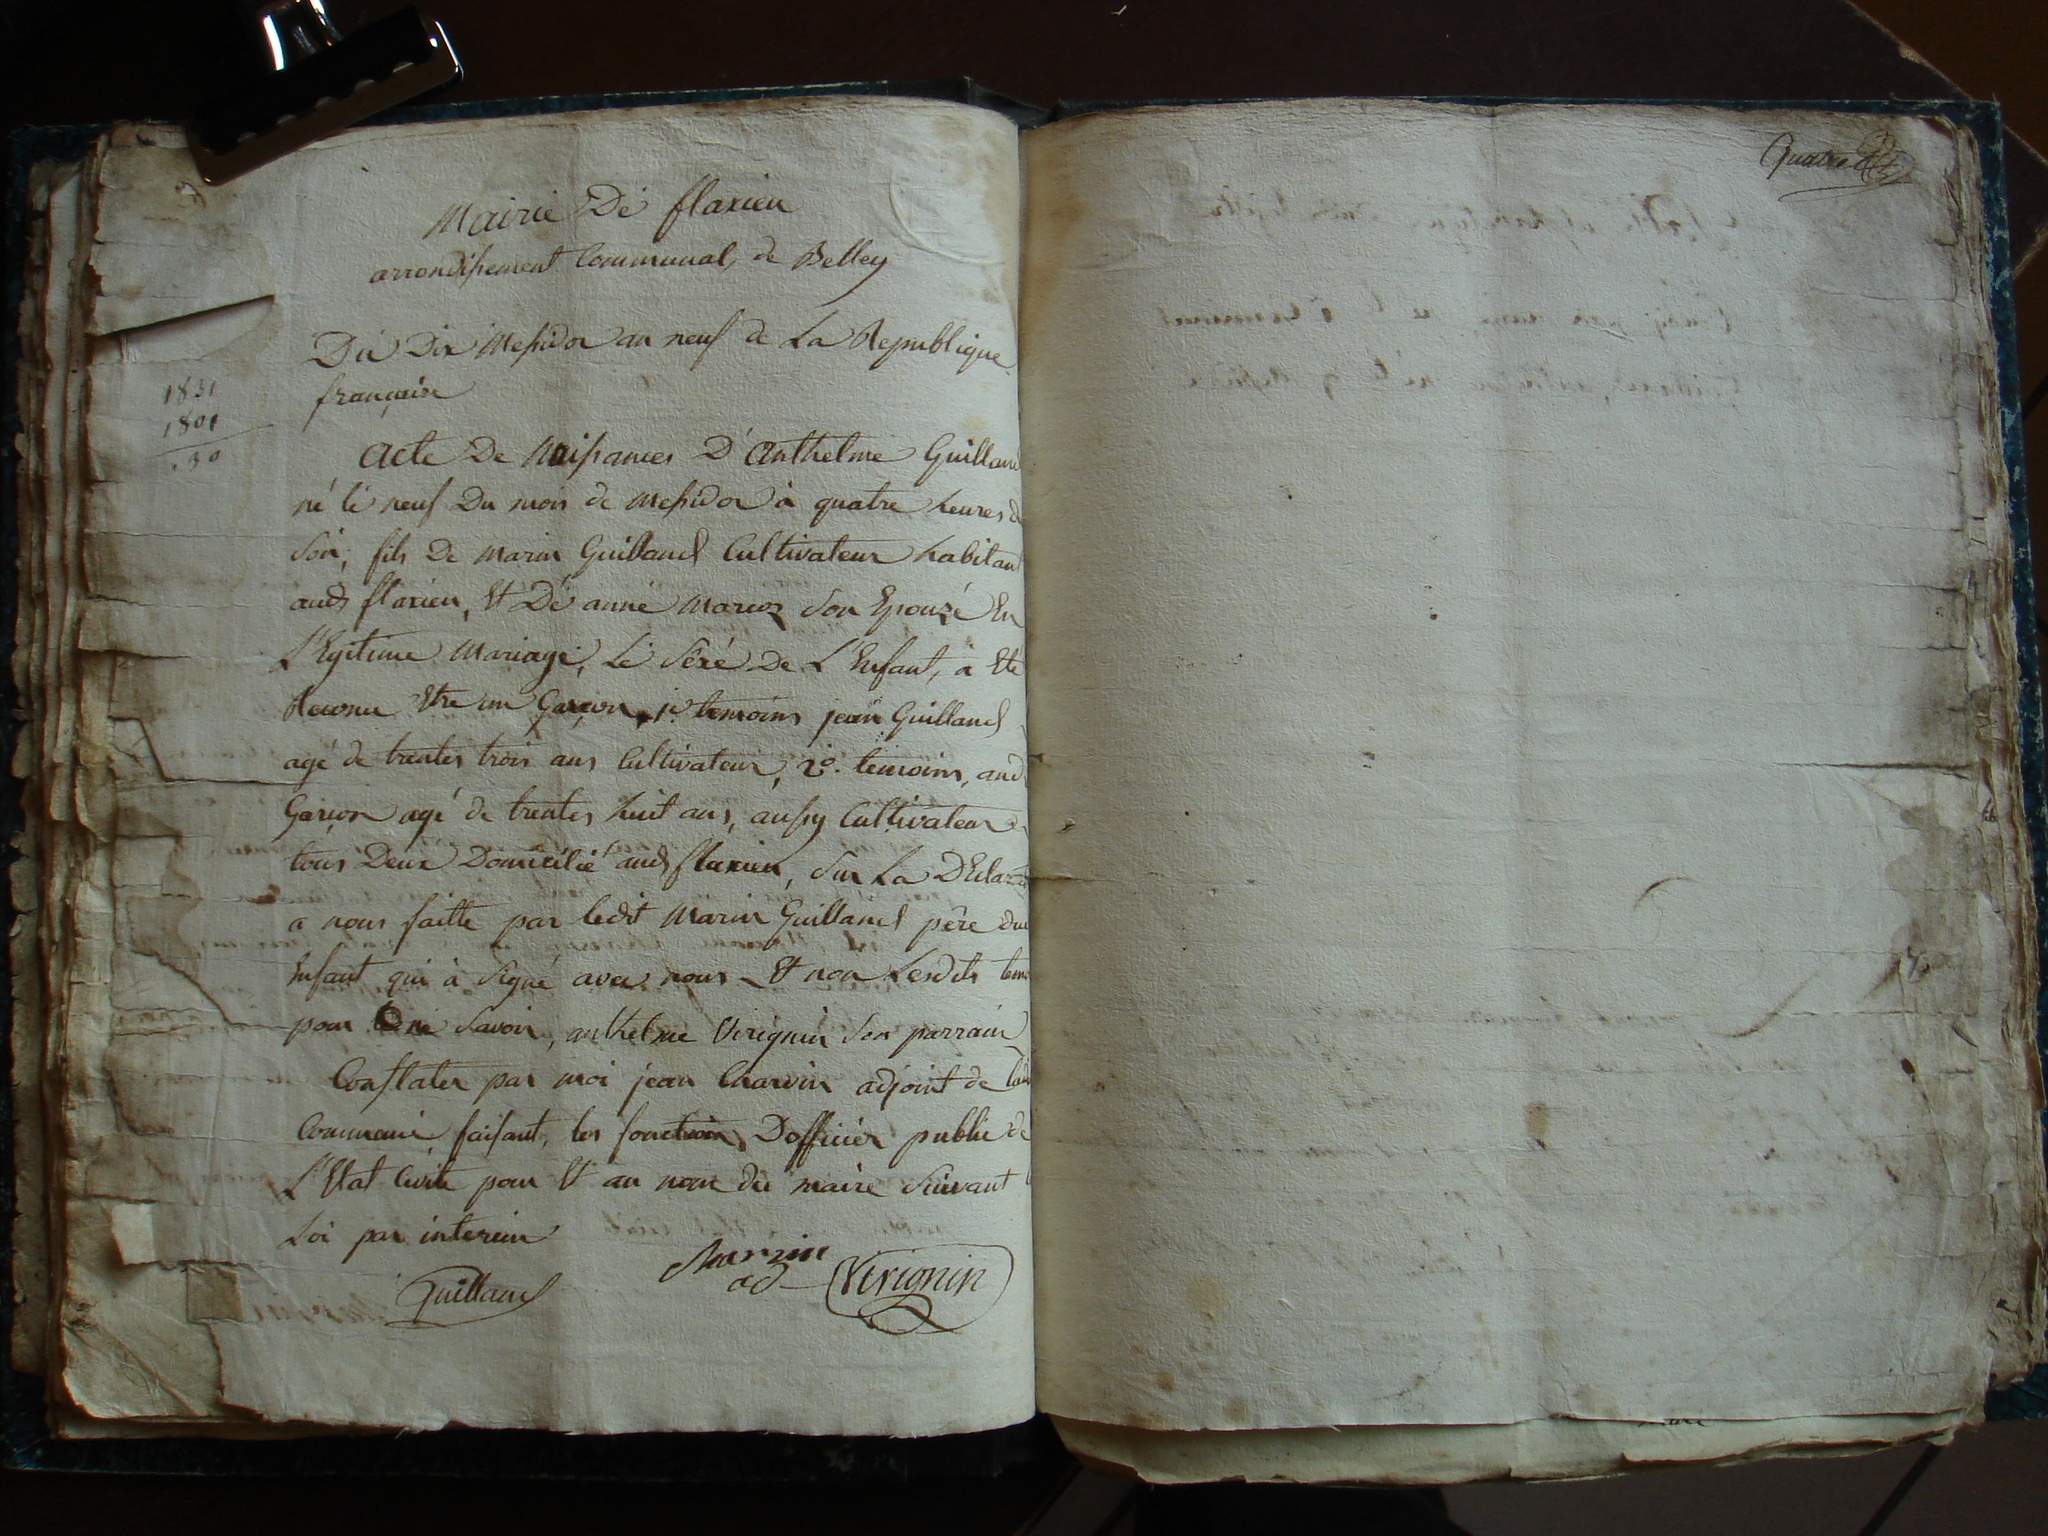 Quatre
Mairie De flaxieu
arrondissement Communal, de Belley
Du Dix Messidor an neuf de La Republique
françaisse
1831
1801
30
Acte De Naissances D'Anthelme Guilland
né le neuf Du mois de Messidor à quatre heures d
Soir, fils De Marin Guilland Cultivateur habitant
auds flaxieu, Et Dé anné Marion Son Epouzé En
L'Egitime Mariagé, Lé Séxé De L'Enfant, à Eté
Reconu Etre un Garçon, 1er temoins jean Guilland
agé de trentes trois ans Cultivateur, 2e. temoins, and
Garçon agé de trentes huit ans, aussy Cultivateur
tous Deux Domicilié auds flaxieu, Sur La DEclar
a nous faitte par ledit Marin Guilland pére du
Enfant qui à Signé avec nous Et non Lesdits tem
pour ne Savoir, anthelme Virignin Son parrain
Constater par moi jean Charvin adjoint de lad
Commune faisant, les fonctions Dofficier public de
L'Etat Civile pour Et au nom du maire Suivant l
Loi par interim
Charvin
ad
Virignin
Guilland